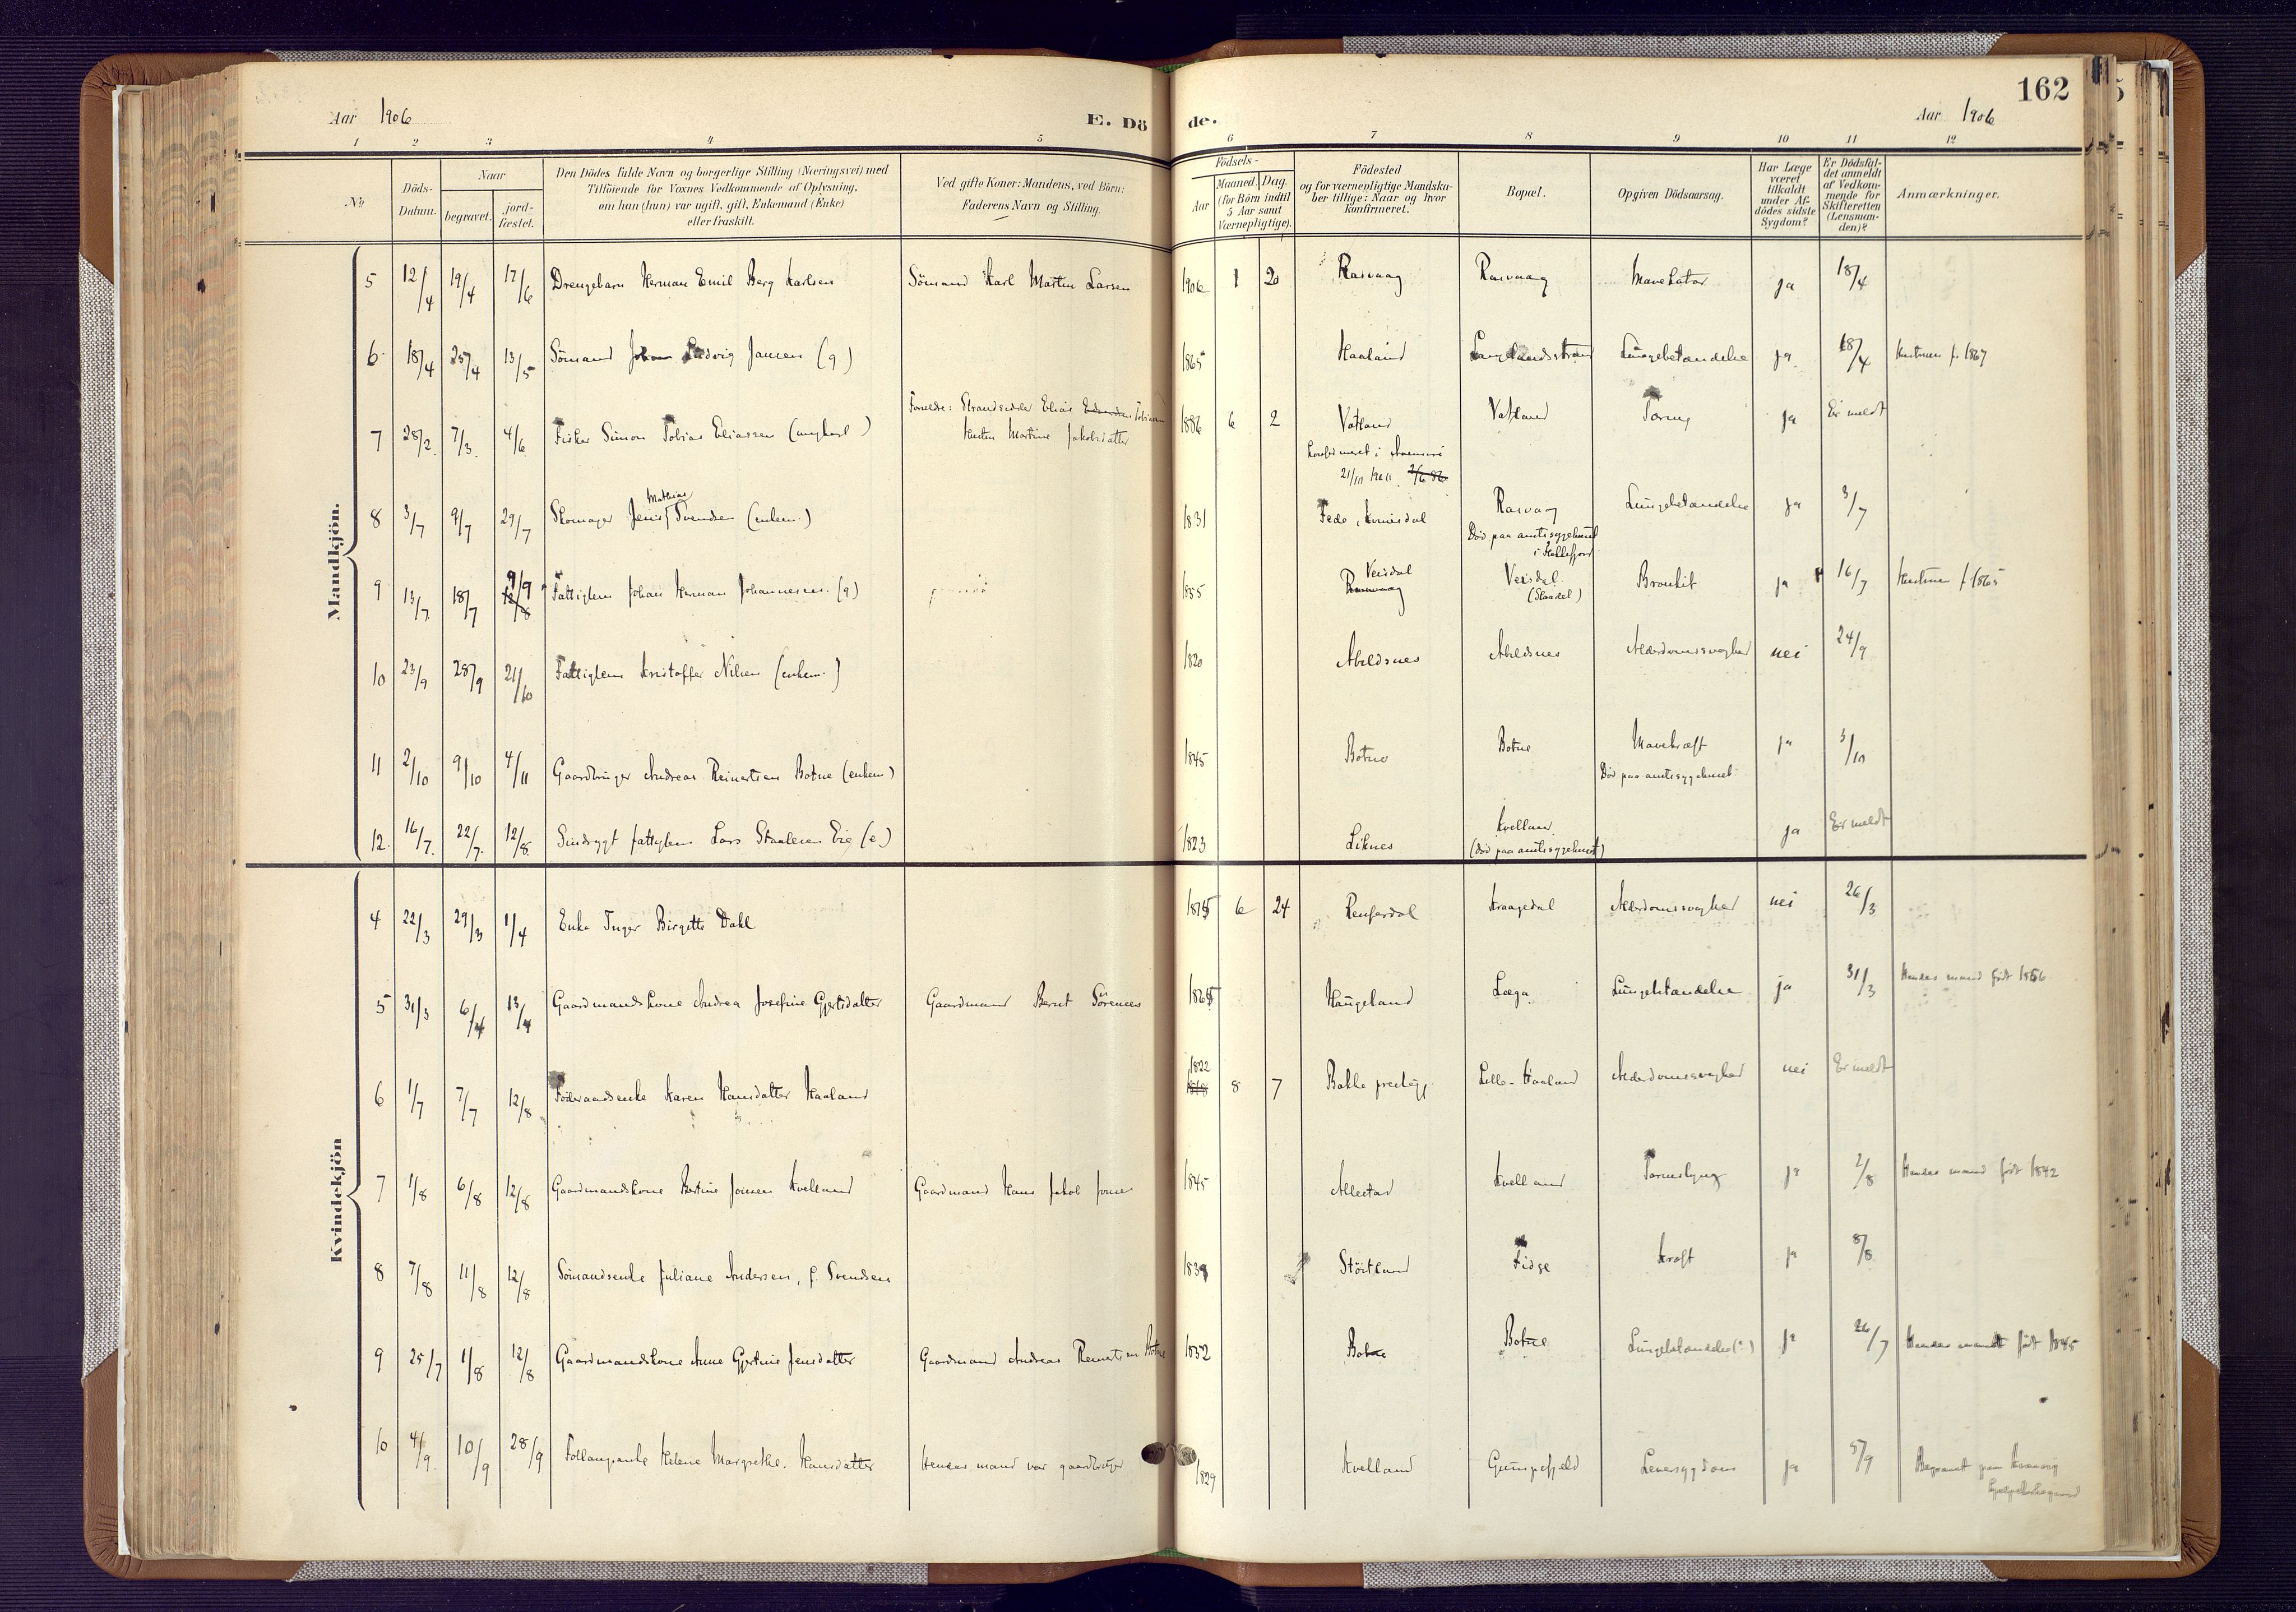 162
Aar 1906
E. Dö
de.
Aar 1906
1 2 3 4 5 6 7 8 9 10 11 12
No
Döds-Datum.
Naar
begravet.
jordfæstet.
Den Dödes fulde Navn og borgerlige Stilling (Næringsvei) med
Tilföiende for Voxnes Vedkommende af Oplysning,
om han (hun) var ugift, gift, Enkemand (Enke)
eller fraskilt.
Ved gifte Koner: Mandens, ved Börn:
Faderens Navn og Stilling.
Födsels-
Aar
Maaned. Dag.
(for Börn indtil
5 Aar samt
Værnepligtige).
Födested
og for værnepligtige Mandska-
ber tillige: Naar og hvor
konfirmeret.
Bopæl.
Opgiven Dödsaarsag.
Har Læge
været
tilkaldt
under Af-
dödes sidste
Sygdom?
Er Dödsfal-
det anmeldt
af Vedkom-
mende for
Skifteretten
(Lensman-
den)?
Anmærkninger.
Mandkjön.
5 12/4 19/4 17/6 Drengebarn Herman Emil Berg Karlsen Sömand Karl Martin Larsen 1906 1 20 Rasvaag Rasvaag Mavekatar ja 18/4
6 18/4 25/4 13/5 Sömand Johan Ludvig Jansen (g) 1865 Haaland Langelandsstrand Lungebetændelse ja 18/4 Hustruen f. 1867
Forældre: Strandsidder Elias Tobiassen
7 28/2 7/3 4/6 Fisker Simon Tobias Eliassen (ungkarl) Hustru Martine Jakobsdatter 1886 6 2 Vatland Vatland Tæring ja Ei meldt
Konfirmeret i
21/10
8 3/7 9/7 29/7 Skomager Jens Mathias Svendsen (enkem.) 1831 Fede, Kvinesdal Rasvaag Lungebetændelse ja 3/7
Död paa amtssygehuset
i
9 13/7 18/7 9/9 Fattiglem Johan Herman Johannesen (g) 1855 Veisdal Veisdal Bronkit ja 16/7 Hustruen f. 1865
10 23/9 28/9 21/10 Fattiglem Kristoffer Nilsen (enkem.) 1820 Abeldsnes Abeldsnes Alderdomssvaghed nei 24/9
11 2/10 9/10 4/11 Gaardbruger Andreas Reinertsen Botne (enkem) 1845 Botne Botne Mavekræft ja 3/10
Död paa amtssygehuset
12. 16/7. 22/7. 12/8. Sindssygt fattiglem Lars Staalesen Eie (e) 1823 Liknes Kvelland ja Ei meldt
(död paa amtssygehuset)
Kvindekjön
4 22/3 29/3 1/4 Enke Inger Birgitte Dahl 6 24 Rensfardal Kraagedal Alderdomssvaghed nei 26/3
5 31/3 6/4 13/4 Gaardmandskone Andrea Josefine Gjertsdatter Gaardmand Bernt Sörensen Haugeland Læga Lungebetændelse ja 31/3 Hendes mand födt 1856
6 1/7 7/7 12/8 Föderaadsenke Karen Hansdatter Haaland 1822 8 7 Bakke prestegj. Lille-Haaland Alderdomssvaghed nei Ei meldt
7 1/8 6/8 12/8 Gaardmandskone Bertine Jonsen Kvelland Gaardmand Hans Jakob Jonsen 1845 Allestad Kvelland Tarmslyng ja 2/8 Hendes mand födt 1842
8 7/8 11/8 12/8 Sömandsenke Juliane Andersen, f. Svendsen Störtland Fidse Kræft ja 8/8
9 25/7 1/8 12/8 Gaardmandskone Anne Gjertine Jensdatter Gaardmand Andreas Reinertsen Botne 1852 Botne Botne Lungebetændelse(?) ja 26/7 Hendes mand födt 1845
10 4/9 10/9 28/9 Helene Margrethe Hansdatter Hendes mand var gaardbruger 1829 Kvelland Gumpefjeld Leversygdom ja 5/9 Begravet paa